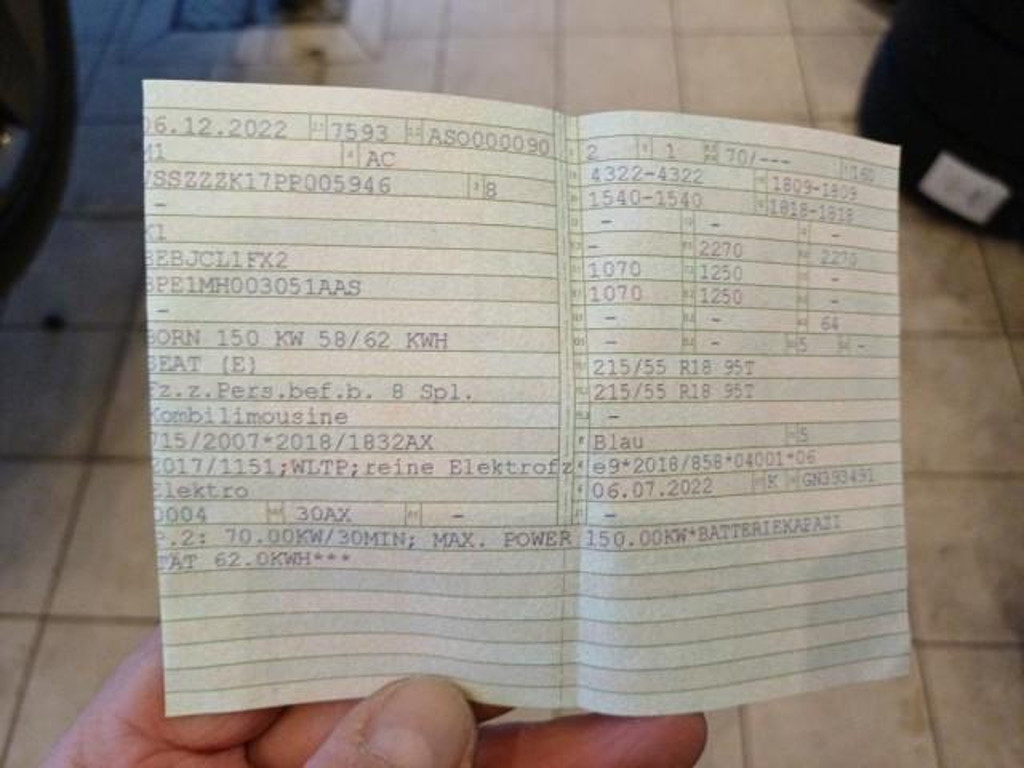 6.12.2022 7593 ASO000090
M1 AC
VSSZZZK17PP005946 8
-
K1
EBJCL1FX2
PE1MH003051AAS
-
BORN 150 KW 58/62 KWH
SEAT (E)
Fz.z.Pers.bef.b. 8 Spl.
Kombilimousine
715/2007*2018/1832AX
2017/1151;WLTP;reine Elektrofz
Elektro
0004 30AX -
P.2: 70.00KW/30MIN; MAX. POWER 150.00KW*BATTERIEKAPAZI
TÄT 62.0KWH***
2 1 70/--- 160
4322-4322 1809-1809
1540-1540 1818-1818
- - -
- 2270 2270
1070 1250 -
1070 1250 -
- - 64
- - 5 -
215/55 R18 95T
215/55 R18 95T
-
Blau 5
e9*2018/858*04001*06
06.07.2022 K GN393491
-